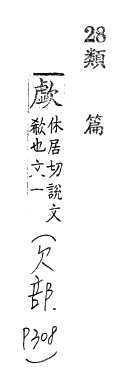 28 類篇
歔 休居切說文
欷也文一
(欠部. P308)